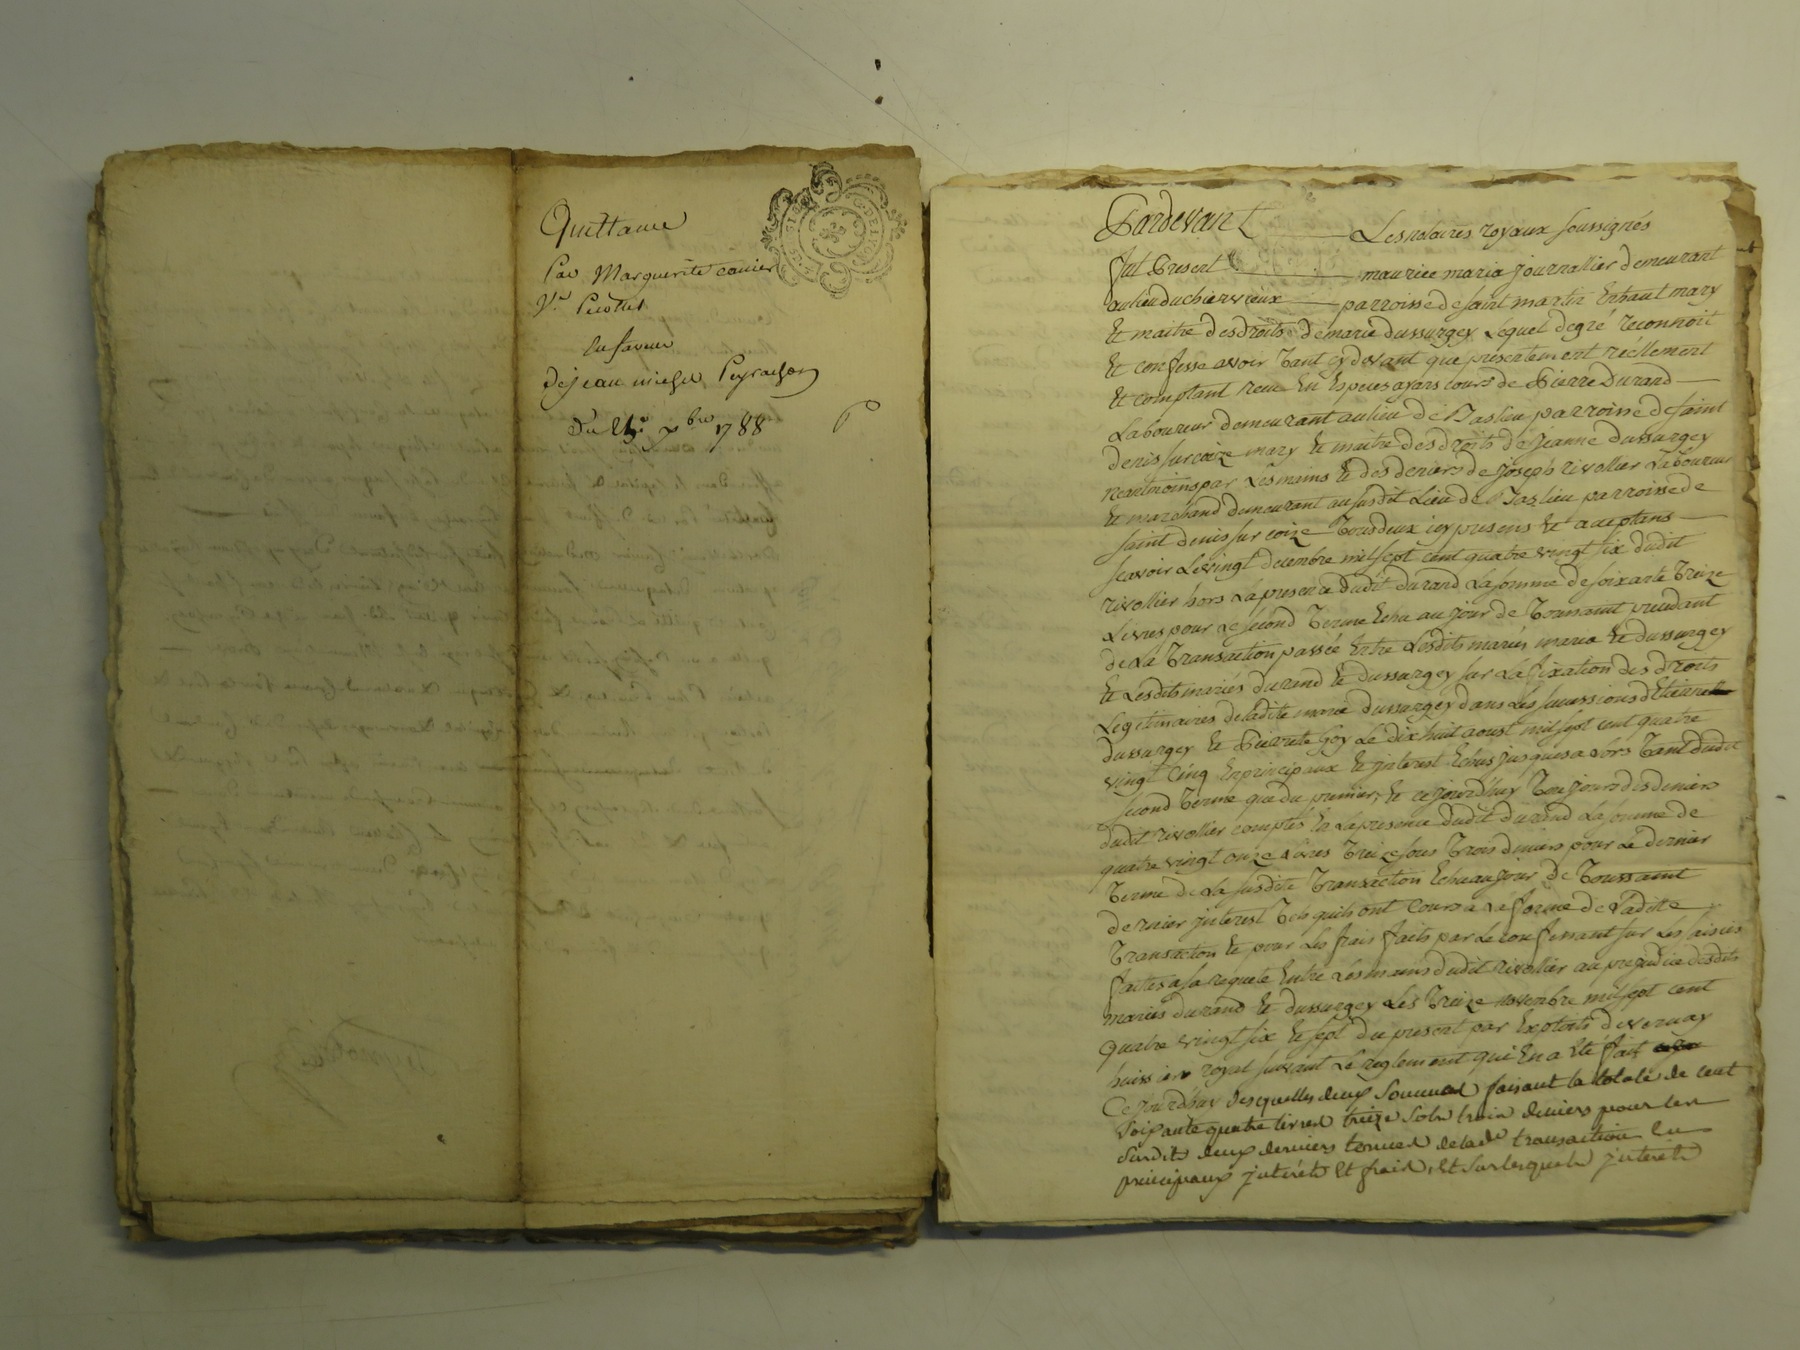 Quittance
Par Marguerite
Ve
En faveur
De jean michel Peyrachon
Du xbre 1788
G. DE LYON
Pardevant Les notaires royaux soussignés
fut Present maurice maria journallier demeurant
au lieu du chiervieux parroisse de saint martin En haut mary
Et maitre des droits de marie dussurgey Lequel de gré reconnoit
Et confesse avoir Tant cy devant que présentement réellement
Et comptant receu En Especes ayans cours de Pierre Durand
Laboureur demeurant au lieu de Baslieu parroisse de saint
denis sur coize mary Et maitre des droits de Jeanne dussurgey
neantmoins par Les mains Et des deniers de joseph rivollier Laboureur
Et marchand demeurant au susdit Lieu de Baslieu parroisse de
saint denis sur coize Tous deux icy presens Et acceptans
scavoir Le vingt decembre mil sept cent quatre vingt six dudit
rivollier hors La presence dudit durand La somme de soixante Treize
Livres pour Le second Terme Echu au jour de Toussaint
de La Transaction passée Entre Lesdits mariés maria Et dussurgey
Et Lesdits mariés durand Et dussurgey sur La fixation des droits
Legitimaires de ladite marie dussurgey dans Les successions d'Etienne
dussurgey Et Pierrette Goy Le dix huit aoust mil sept cent quatre
vingt Cinq En principaux Et interest Echus jusques a alors Tant dudit
second Terme que du premier, Et cejourd'huy Toujours des deniers
dudit rivollier comptés En La presence dudit durand La somme de
quatre vingt onze Livres Treize sous Trois deniers pour Le dernier
Terme de La susdite Transaction Echu au jour de Toussaint
dernier interest Tels quils ont Couru a La forme de Laditte
Transaction Et pour Les frais faits par Le confessant sur Les saisies
faites a sa requete Entre Les mains dudit rivollier au prejudice desdits
mariés durand Et dussurgey Les Treize novembre mil sept cent
quatre vingt six Et sept du present par Exploits de vernay
huissier royal suivant Le reglement qui En a Eté fait
Ce jourdhuy desquelles deux sommes faisant la totale de cent
soixante quatre livres treize sols trois deniers pour les
susdits deux derniers termes de lade transaction En
principaux interêts Et frais, Et sur lesquels interêts